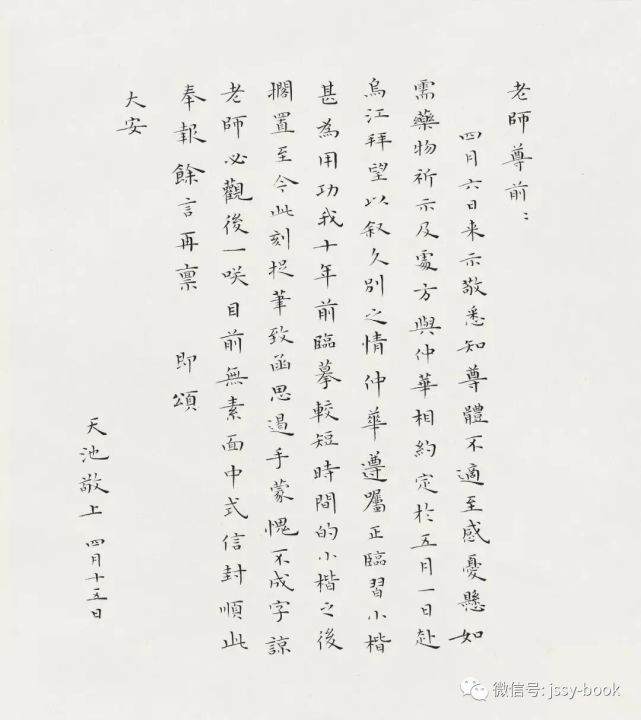 老師尊前：
四月六日来示敬悉知尊體不適至感憂懸如
需藥物祈示及處方與仲華相約定於五月一日赴
烏江拜望以叙久別之情仲華遵囑正臨習小楷
甚為用功我十年前臨摹較短時間的小楷之後
擱置至今此刻提筆致函思遏手蒙愧不成字諒
老師必觀後一咲目前無素面中式信封順此
奉報餘言再禀 即頌
大安
天池敬上 四月十五日
微信号: jssy-book